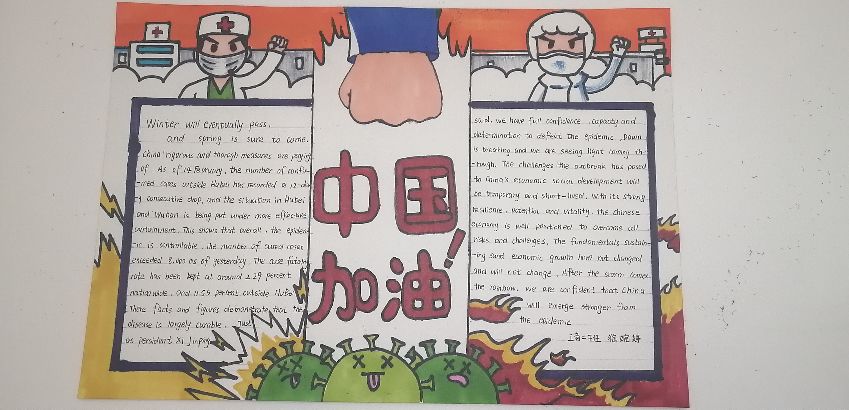 Winter will eventually pass,
and spring is sure to come.
China' rigorous and thorough measures are paying
off. As of 14 February, the number of confir-
-med cases outside Hubei has recorded a 12-da-
y consecutive drop, and the situation in Hubei
and Wuhan is being put under more effective
containment. This shows that overall, the epidem-
-ic is controllable. The number of cured cases
exceeded as of yesterday. The case fatali-
rate has been kept at around 2.29 percent
nationwide, and 0.55 percent outside Hubei
These facts and figures demonstrate that the
disease is largely curable. Just
as president Xi Jinping
中国
加油!
said, we have full confidence, capacity and
determination to defeat the epidemic. Dawn
is breaking and we are seeing light coming th-
-rough. The challenges the outbreak has posed
to China's economic social development will
be temporary and short-lived. With its strong
resilience, potential and vitality, the Chinese
economy is well positioned to overcome all
risks and challenges. The fundamentals sustain-
-ing said economic growth hant not changed
and will not change. After the storm comes
the rainbow. We are confident that China
will emerge stronger from
the epidemic